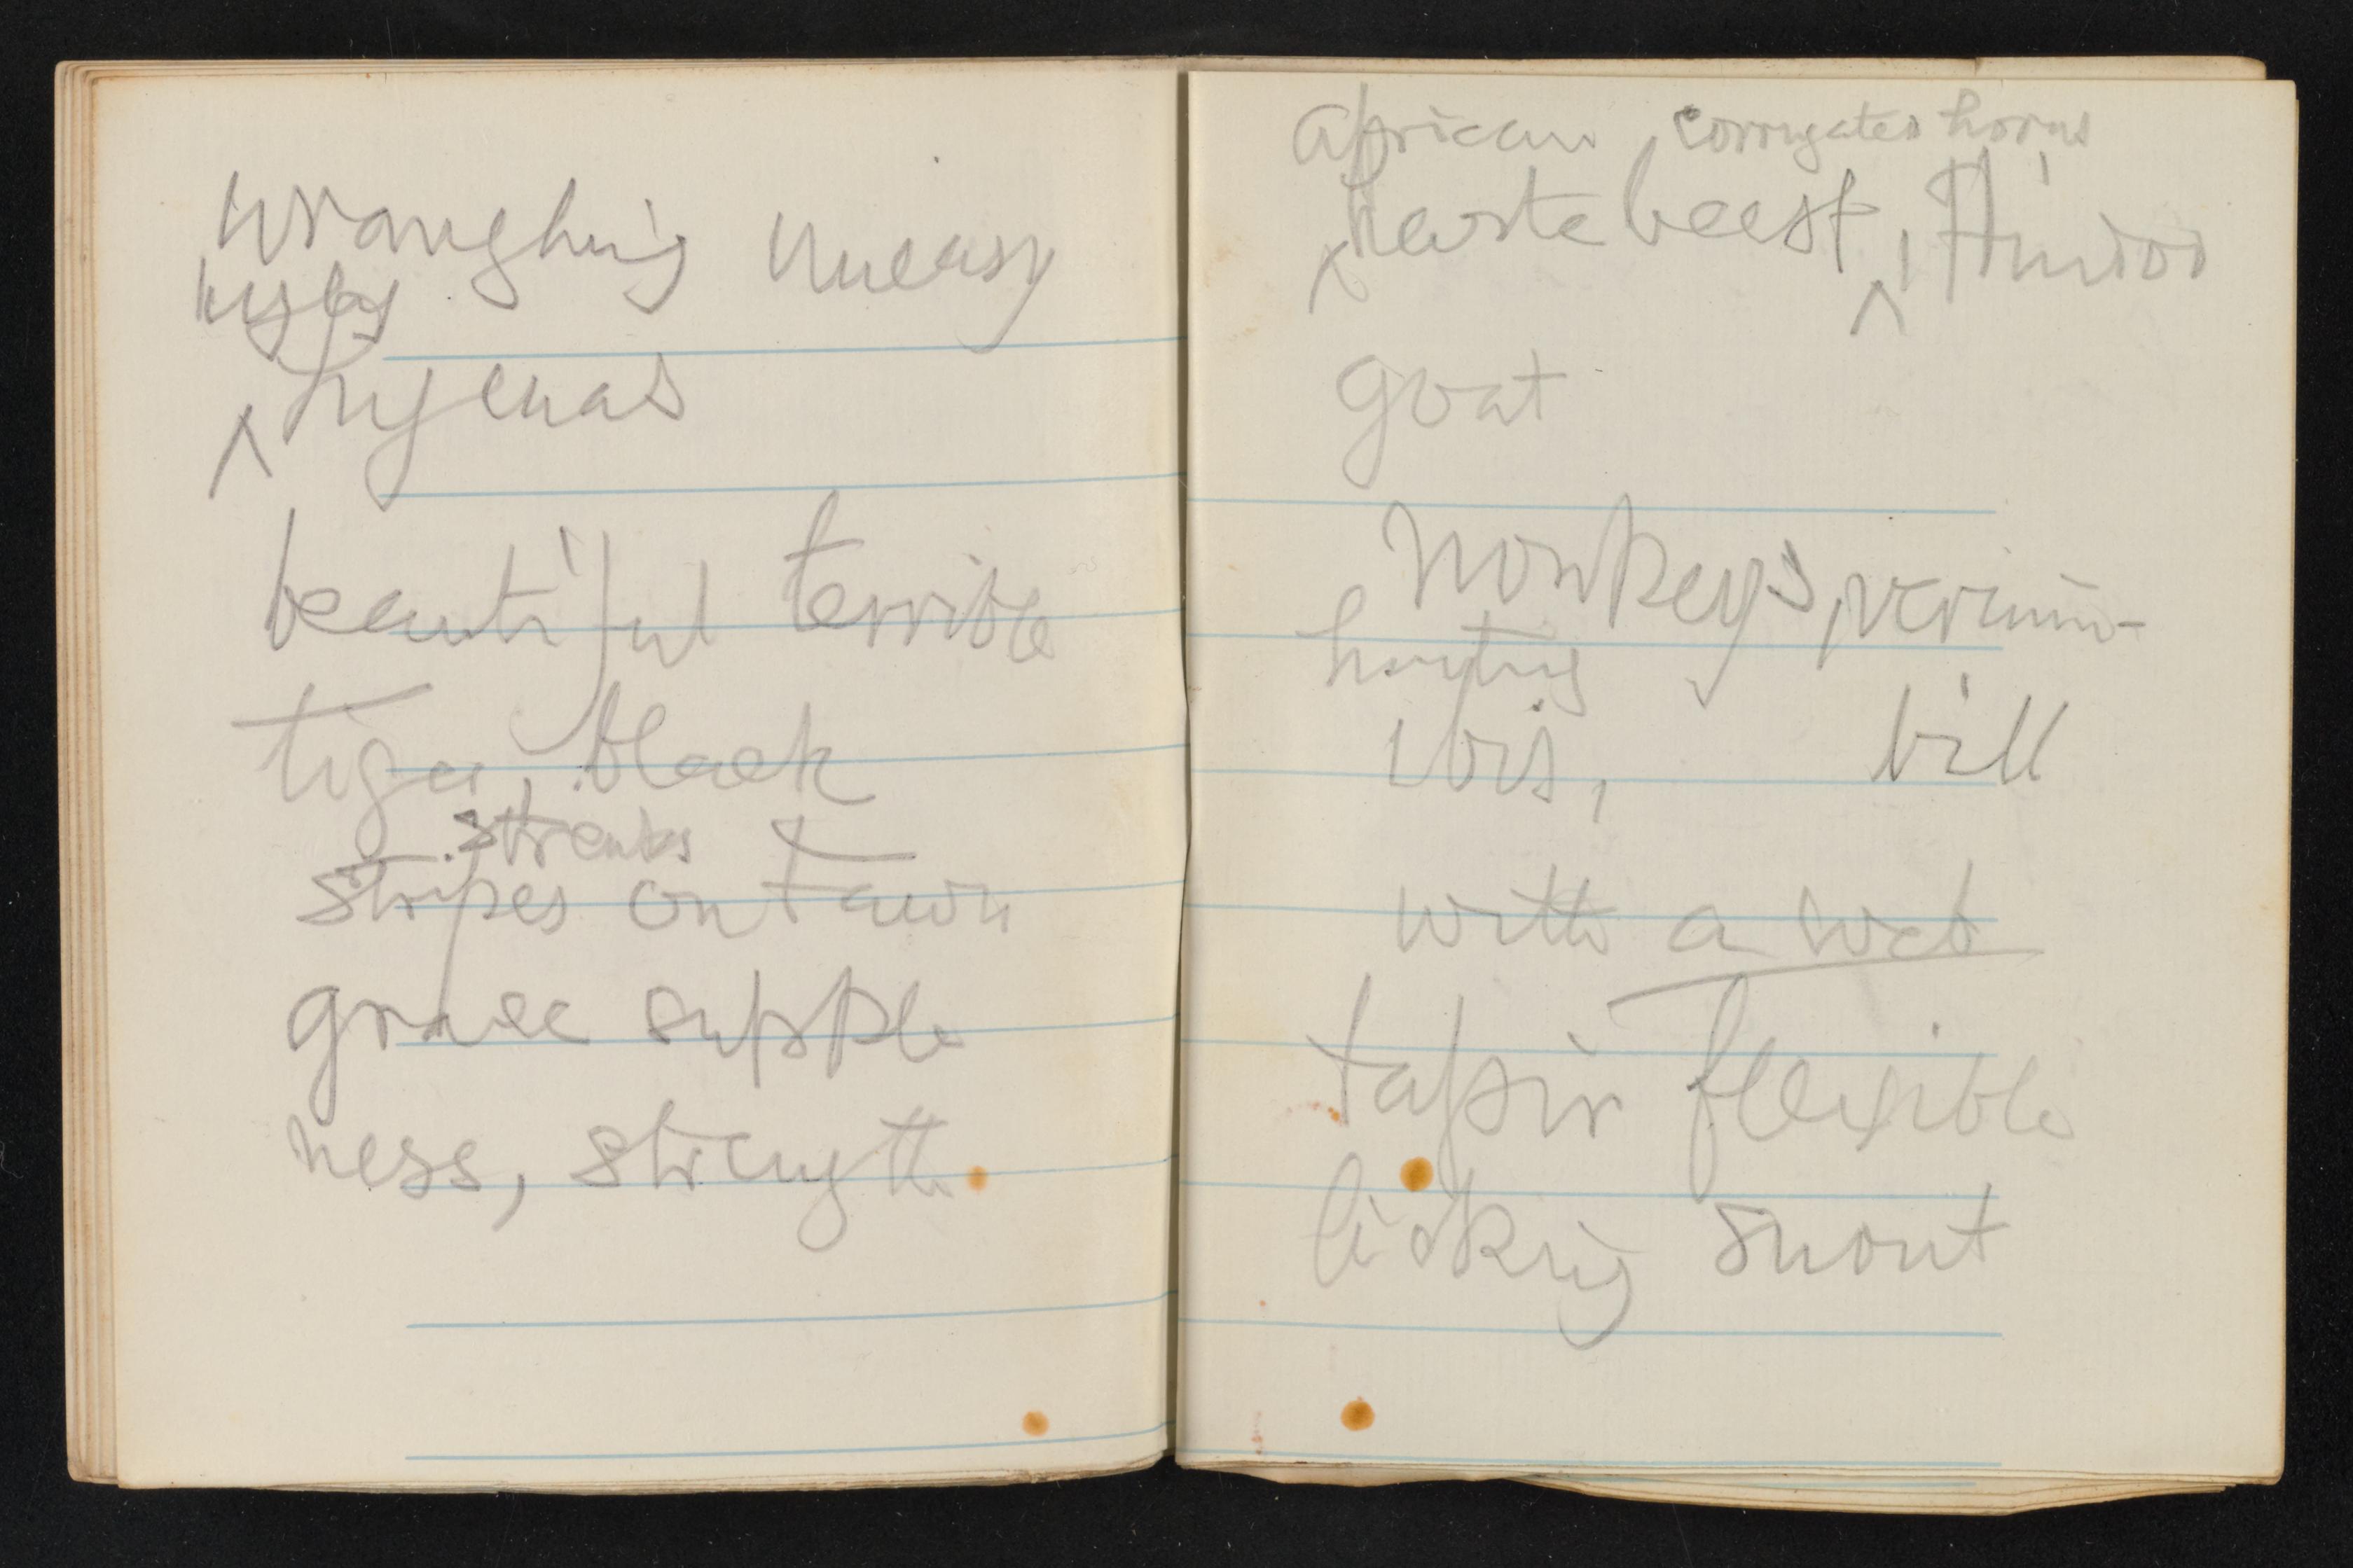 wranghing uneasy
ugly
^ hyenas
beautiful terrible
tiger, black
streaks
stripes on tawn
grace supple
ness, strength
African corrugated horns
^ hartebeest, ^ Hindoo
goat
Monkeys,
ibis, bill
with a web
tapir flexible
licking snout